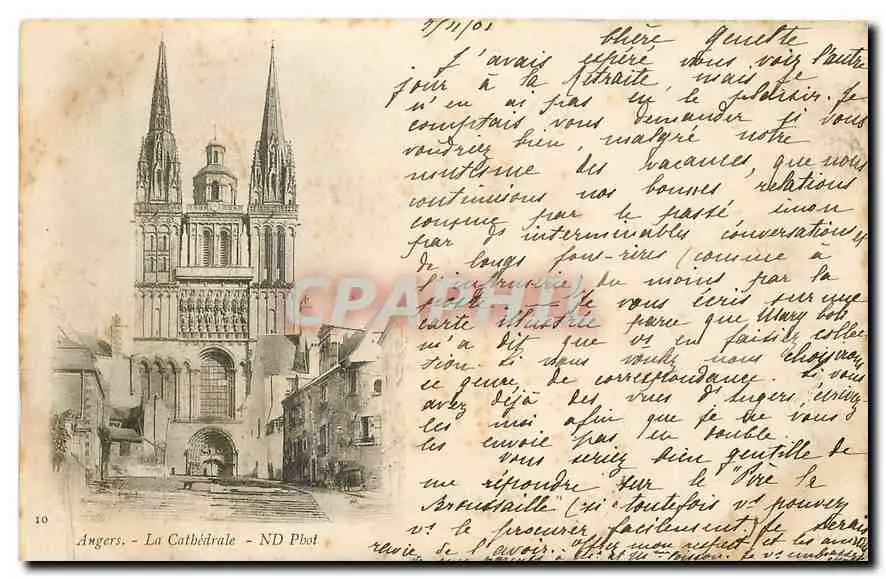 2/11/01
Chère Ginette
J'avais espéré vous voir l'autre
jour à la Retraite, mais je
n'en ai pas eu le plaisir. Je
comptais vous demander si vous
voudriez bien, malgré notre
des vacances, que nous
continuions nos bonnes relations
comme par le passé, sinon
par d'interminables conversations et
de longs fous-rires (comme à
l'infirmerie) du moins par la
poste. — Je vous écris sur une
carte illustrée parce que Mary
m'a dit que vs en faisiez collec
tion. Si vous voulez nous choisirons
ce genre de correspondance. Si vous
avez déjà des vues d'Angers écrivez
les moi afin que je ne vous
les envoie pas en double.
Vous seriez bien gentille de
me répondre sur le "Père la
Broussaille" (si toutefois vs pouvez
vs le procurer facilement) Je serais
ravie de l'avoir. Offrez mon respect et les
CPAPHIL
10
Angers. - La Cathédrale - ND Phot